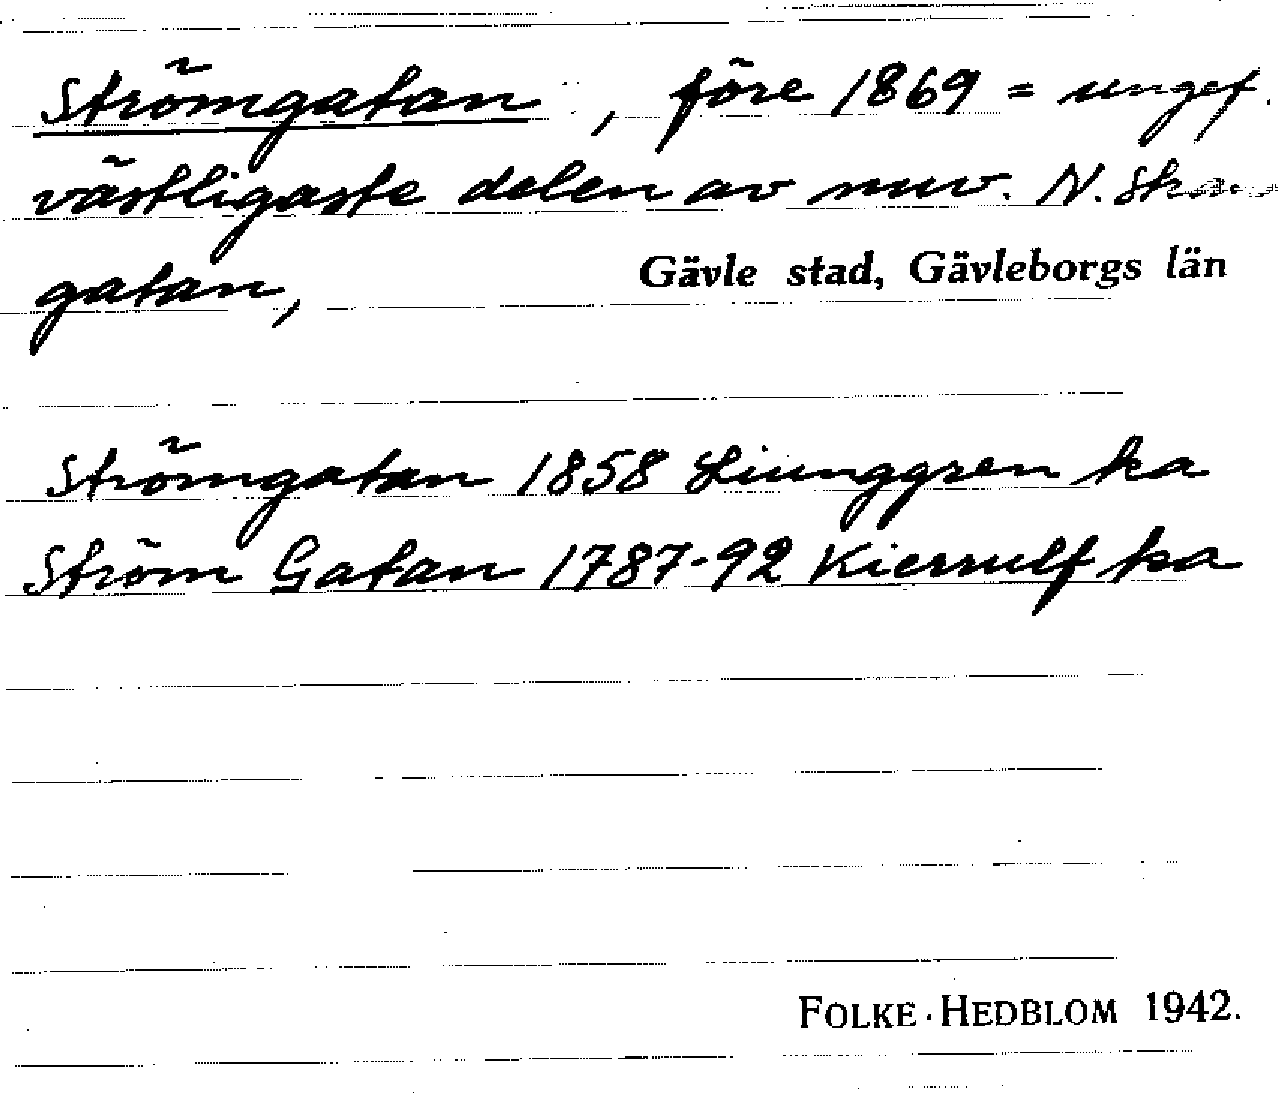 Strömgatan, före 1869 = ungef.
västligaste delen av nuv. N. Ska
gatan,
Gävle stad, Gävleborgs län
Strömgatan 1858 Liunggren ka
Ström Gatan 1787-92 Kierrulf ka
FOLKE HEDBLOM 1942.